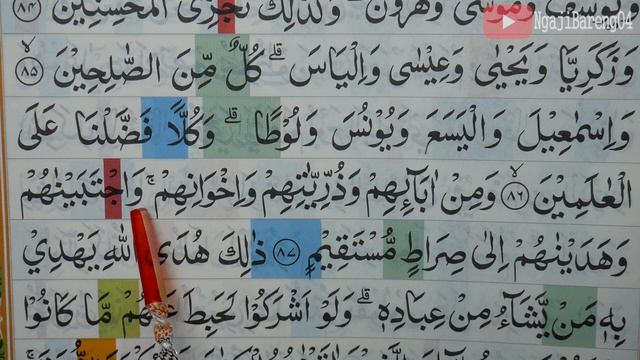 NgajiBareng04
وَمُوْسٰى وَهٰرُوْنَ ۗوَكَذٰلِكَ نَجْزِى الْمُحْسِنِيْنَ ﴿٨٤﴾
وَزَكَرِيَّا وَيَحْيٰى وَعِيْسٰى وَاِلْيَاسَ ۗ كُلٌّ مِّنَ الصّٰلِحِيْنَ ۙ﴿٨٥﴾
وَاِسْمٰعِيْلَ وَالْيَسَعَ وَيُوْنُسَ وَلُوْطًا ۗ وَكُلًّا فَضَّلْنَا عَلَى
الْعٰلَمِيْنَ ۙ﴿٨٦﴾ وَمِنْ اٰبَاۤىِٕهِمْ وَذُرِّيّٰتِهِمْ وَاِخْوَانِهِمْ ۚ وَاجْتَبَيْنٰهُمْ
وَهَدَيْنٰهُمْ اِلٰى صِرَاطٍ مُّسْتَقِيْمٍ ﴿٨٧﴾ ذٰلِكَ هُدَى اللّٰهِ يَهْدِيْ
بِهٖ مَنْ يَّشَاۤءُ مِنْ عِبَادِهٖ ۗ وَلَوْ اَشْرَكُوْا لَحَبِطَ عَنْهُمْ مَّا كَانُوْا